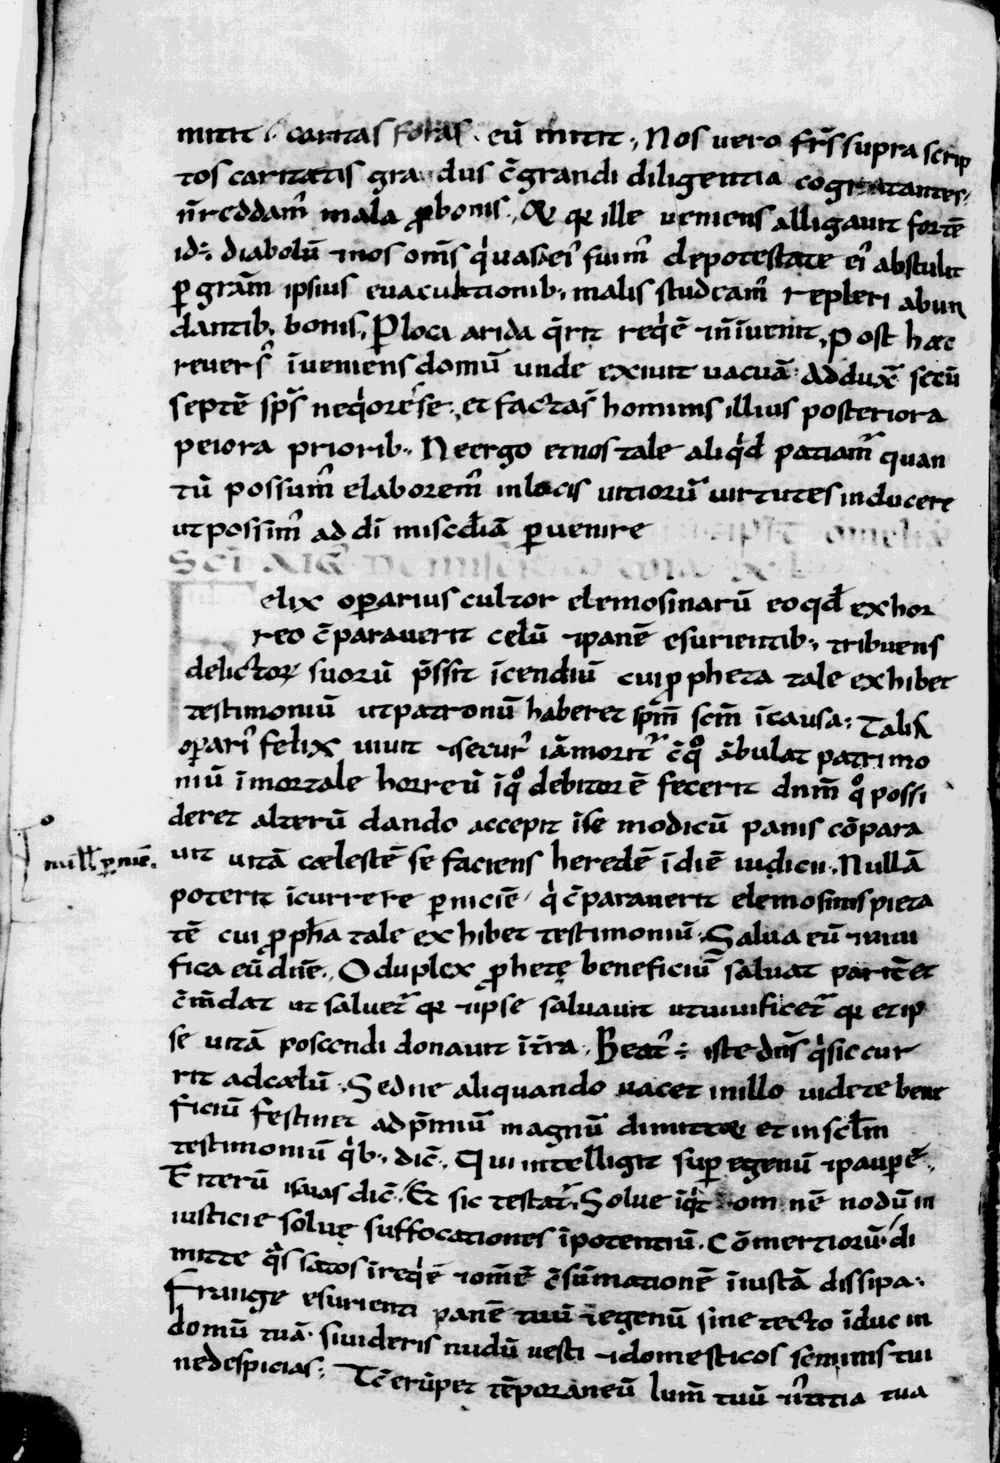 mittit ⁊ caritas foras eū mittit; Nos vero fr̄s supra scrip
tos caritatis gradus c̄grandi diligentia cogitantes,
n̄ reddam̄ mala ꝓ bonis; & qꝛ ille ueniens alligauit fortē
id÷ diabolū ⁊nos om̄s qͥ uasa eiꝰ fuimꝰ de potestate eiꝰ abstulit
ꝑ gram̄ ipsius euacuationib; malis studeamꝰ repleri abun
dantib; bonis; Ꝑ loca arida q̄rit reqͥē ⁊n̄ īuenit, Post hæc
reuersꝰ īueniens domū unde exiuit uacuā Adduxͭ secū
septē sp̄s neqͥores se, et fact̄ as̄ hominis illius posteriora
peiora priorib; Ne ergo et nos tale aliqͥd patiamꝰ quan
tū possumꝰ elaboremꝰ in locis uitiorū uirtutes inducere
ut possimꝰ ad dī misc̄diā ꝑuenire
elix oꝑarius cultor elemosinarū eo qd̄ ex hor
reo c̄parauerit celū ⁊panē esurientib; tribuens
delictoꝝ suorū p̄ssit īcendiū cui ꝓpheta tale exhibet
testimoniū ut patronū haberet sp̄m s̄cm ī causa; Talis
oꝑariꝰ felix uiuit ⁊securꝰ iā moritͬ c̄ qͦ ābulat patrimo
niū īmortale horreū ī qͦ debitorē fecerit dnm̄ qͦ possi
deret alterū dando accepit ī se modicū panis cōpara
uit uitā cælestē se faciens heredē ī diē iudicii. Nullā
poterit īcurrere ꝑniciē qͥ c̄parauerit elemosinis pieta
tē cui ꝓph̄a tale exhibet testimoniū. Salua eū ⁊uiui
fica eū dn̄e. O duplex ꝓphetę beneficiū saluat partē et
c̄m̄dat ut saluetͬ qꝛ ⁊ipse saluauit ut uiuificetͬ qꝛ et ip
se uitā poscendi donauit ī tr̄a. Beatꝰ ÷ iste dn̄s qͥ sic cur
rit ad cælū. Sed ne aliquando uacet in illo uidete bene
ficiū festinet ad p̄miū magnū et in sc̄lm
testimoniū qͥb; dic̄. Qui intelligit suꝑ egenū ⁊pauꝑē.
Et iterū isaias dic̄. Et sic testatͬ. Solue īqͥt omnē nodū in
iusticie solue suffocationes īpotentiū. cōmertiorū di
mitte qͣssatos ī reqͥē ⁊omē c̄sūmationē īiustā dissipa.
Frange esurienti panē tuū ⁊egenū sine tecto īduc in
domū tuā. si uideris nudū uesti ⁊domesticos seminis tui
ne despicias; Tc̄ erūpet tēporaneū lum̄ tuū ⁊ tua
null ꝑniē.